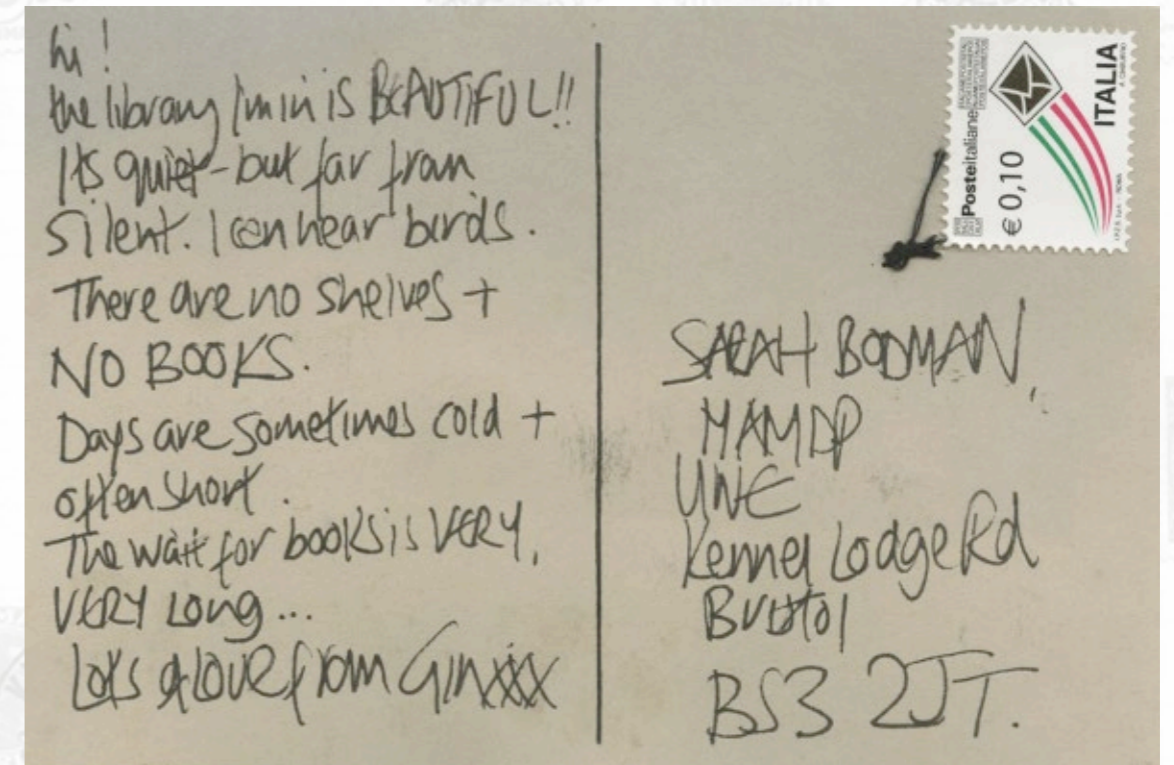 hi!
the library I'm in is BEAUTIFUL!!
Its quiet - but far from
silent. I can hear birds.
There are no shelves +
NO BOOKS.
Days are sometimes cold +
often short.
The wait for books is VERY,
VERY LONG...
Lots of love from Gin xxx
Posteitaliane
€ 0,10
ITALIA
SARAH BODMAN,
MAMDP
UWE
Kennel Lodge Rd
Bristol
BS3 2JT.